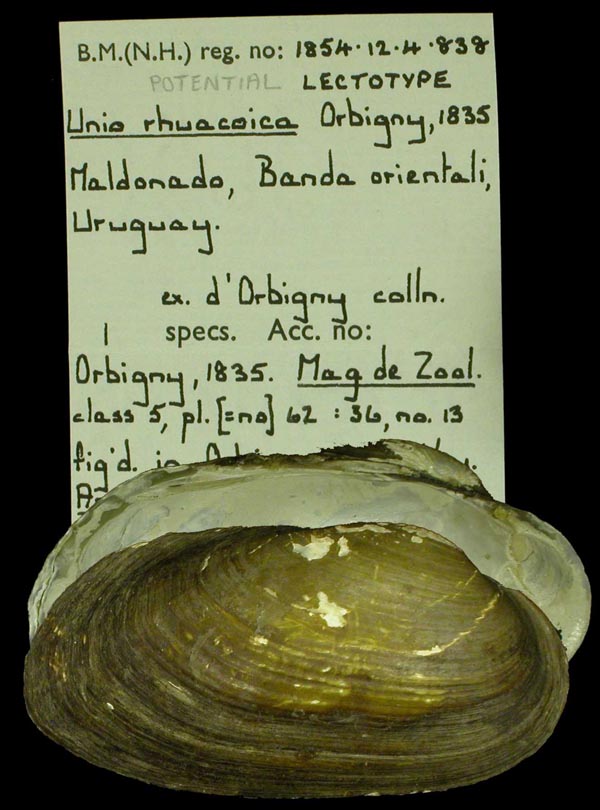 B.M.(N.H.) reg. no: 1854·12·4·838
POTENTIAL LECTOTYPE
Unio rhuacoica Orbigny, 1835
Maldonado, Banda orientali,
Uruguay.
ex. d'Orbigny colln.
1 specs. Acc. no:
Orbigny, 1835. Mag de Zool.
class 5, pl. [=no] 62 : 36, no. 13
fig'd. in